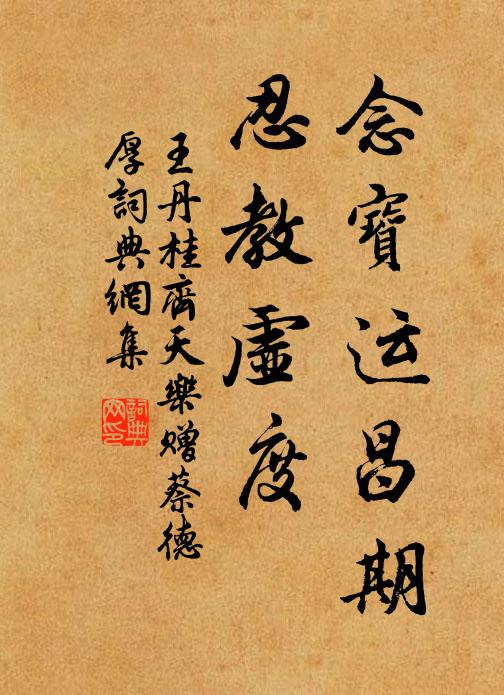 念寶运昌期
忍教虛度
王丹桂齊天樂贈蔡德
厚詞典網集
詞典網印